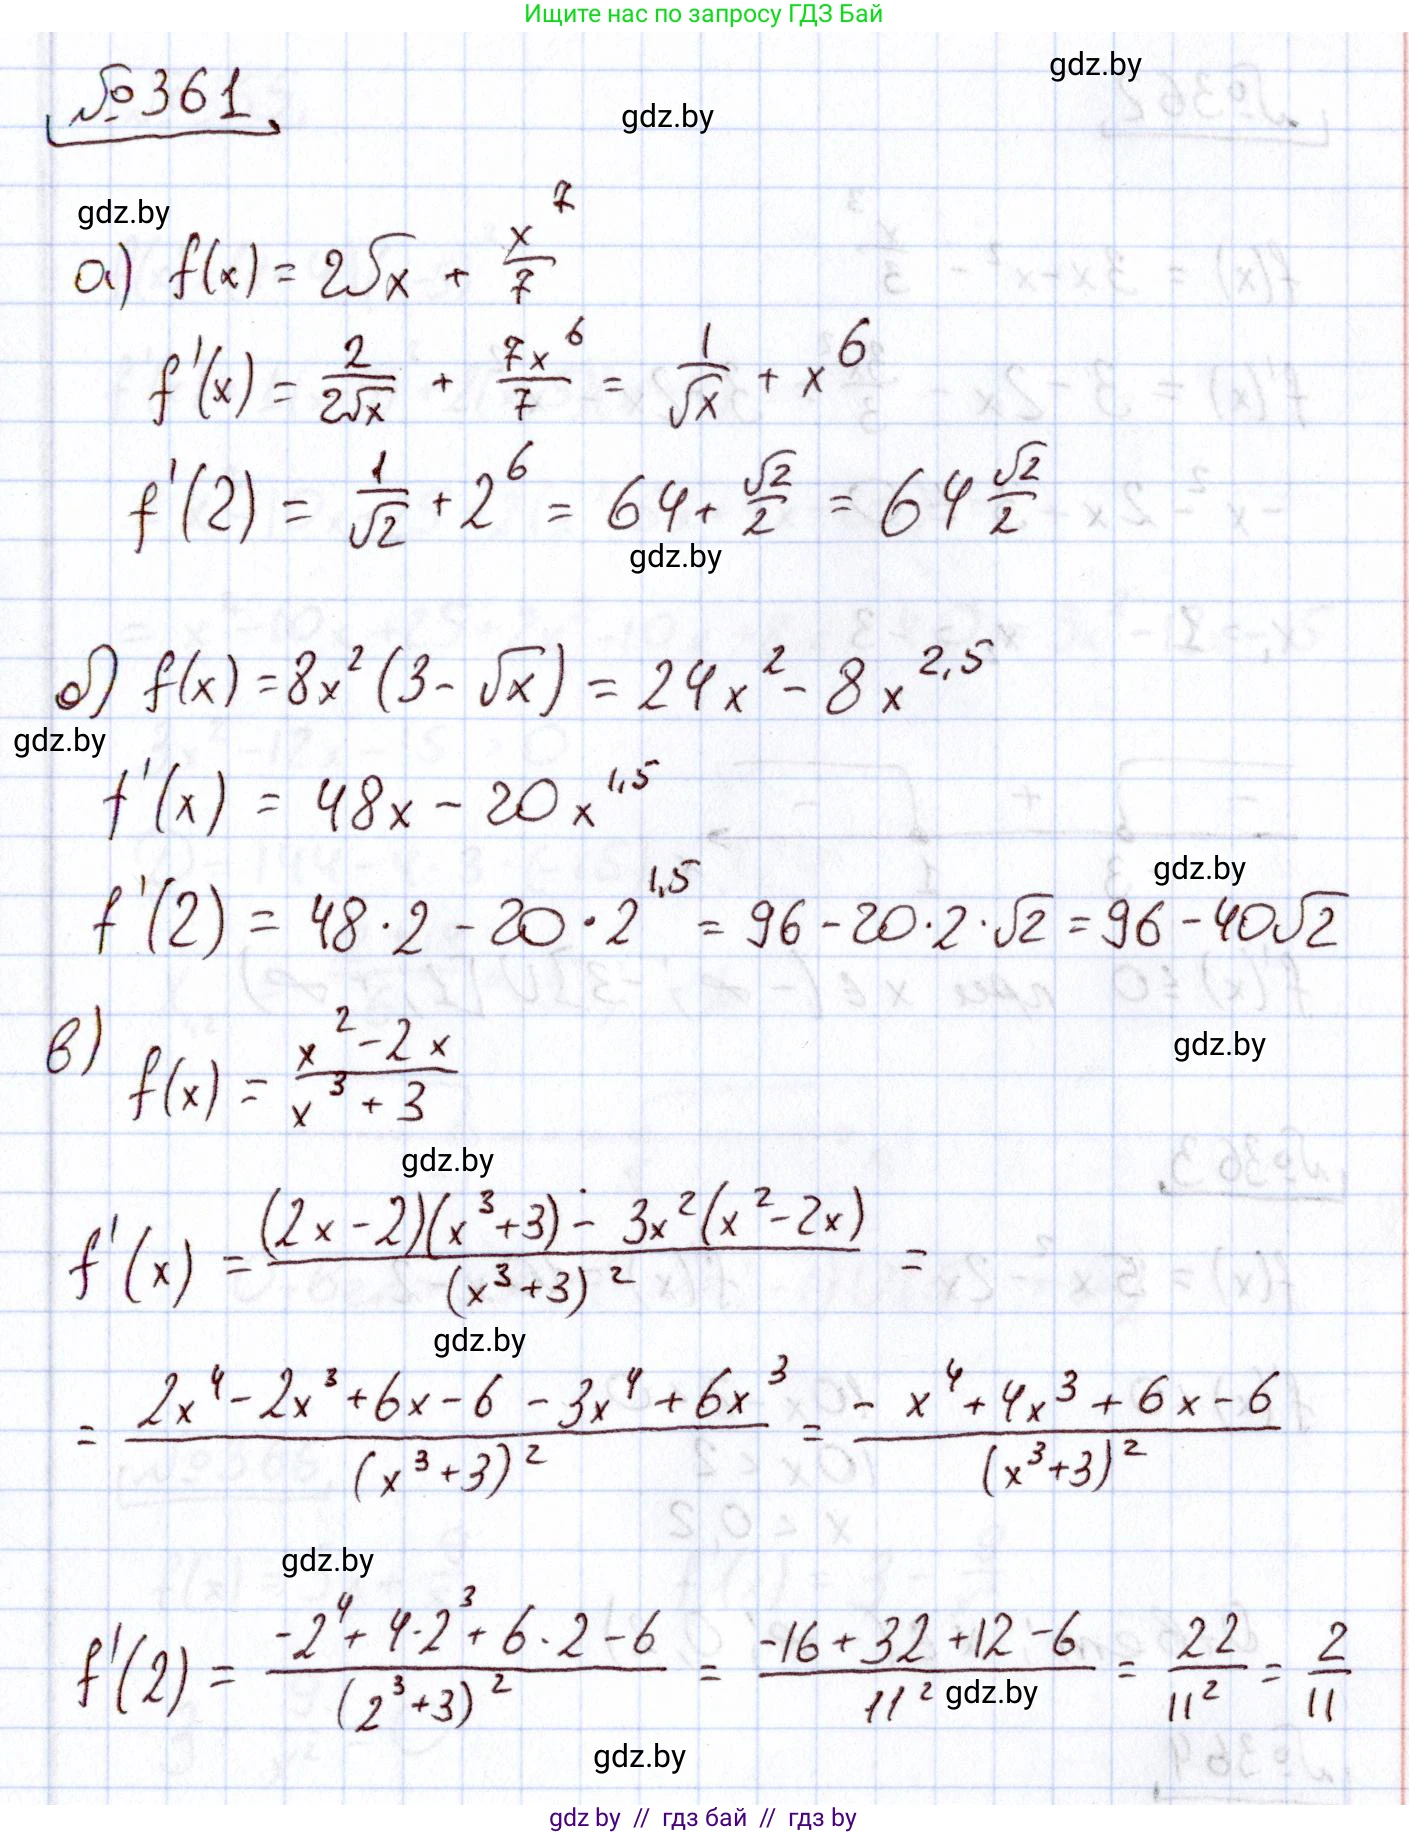 Ищите нас по запросу ГДЗ Бай
gdz.by
№361
gdz.by
gdz.by
а) f(x) = 2√x + x^7/7
f'(x) = 2/(2√x) + 7x^6/7 = 1/√x + x^6
f'(2) = 1/√2 + 2^6 = 64 + √2/2 = 64 √2/2
gdz.by
б) f(x) = 8x^2 (3 - √x) = 24x^2 - 8x^2,5
gdz.by
f'(x) = 48x - 20x^1,5
gdz.by
f'(2) = 48·2 - 20·2^1,5 = 96 - 20·2·√2 = 96 - 40√2
в) f(x) = (x^2 - 2x)/(x^3 + 3)
gdz.by
gdz.by
f'(x) = ((2x - 2)(x^3 + 3) - 3x^2(x^2 - 2x))/(x^3 + 3)^2 =
gdz.by
= (2x^4 - 2x^3 + 6x - 6 - 3x^4 + 6x^3)/(x^3 + 3)^2 = (-x^4 + 4x^3 + 6x - 6)/(x^3 + 3)^2
gdz.by
f'(2) = (-2^4 + 4·2^3 + 6·2 - 6)/(2^3 + 3)^2 = (-16 + 32 + 12 - 6)/11^2 = 22/11^2 = 2/11
gdz.by
gdz.by
gdz.by // гдз бай // гдз by